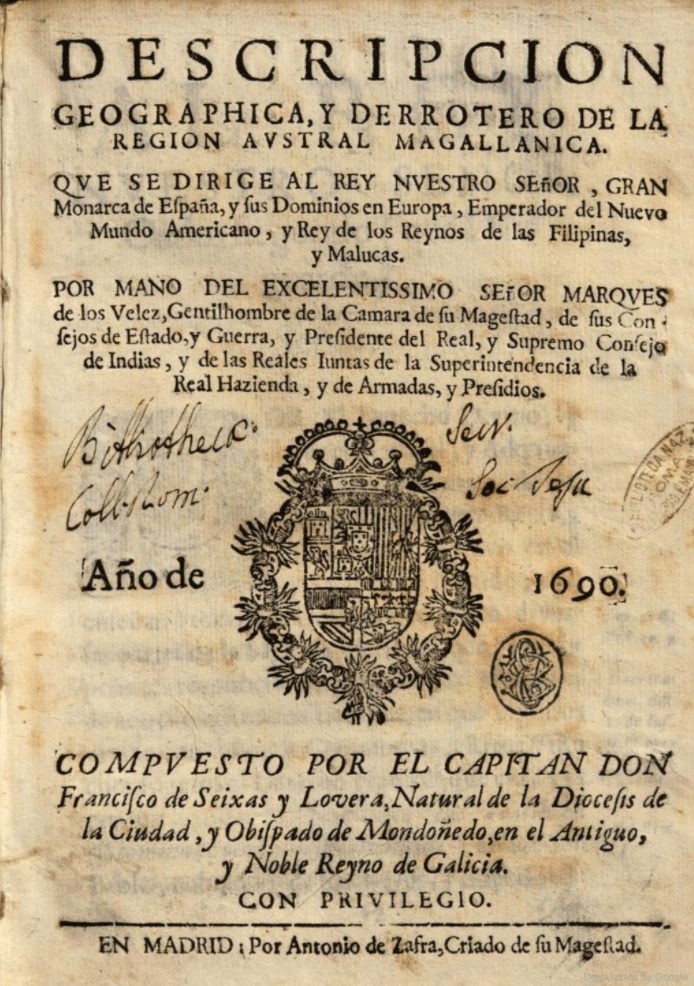 DESCRIPCION
GEOGRAPHICA, Y DERROTERO DE LA
REGION AVSTRAL MAGALLANICA.
QVE SE DIRIGE AL REY NVESTRO SEñOR, GRAN
Monarca de España, y ſus Dominios en Europa, Emperador del Nuevo
Mundo Americano, y Rey de los Reynos de las Filipinas,
y Malucas.
POR MANO DEL EXCELENTISSIMO SEñOR MARQVES
de los Velez, Gentilhombre de la Camara de ſu Mageſtad, de ſus Con-
ſejos de Eſtado, y Guerra, y Preſidente del Real, y Supremo Conſejo
de Indias, y de las Reales Iuntas de la Superintendencia de la
Real Hazienda, y de Armadas, y Preſidios.
Bibliothecæ Secr.
Coll. Rom. Soc Jesu
Año de 1690.
COMPVESTO POR EL CAPITAN DON
Franciſco de Seixas y Lovera, Natural de la Dioceſis de
la Ciudad, y Obiſpado de Mondoñedo, en el Antiguo,
y Noble Reyno de Galicia.
CON PRIVILEGIO.
EN MADRID: Por Antonio de Zafra, Criado de ſu Mageſtad.